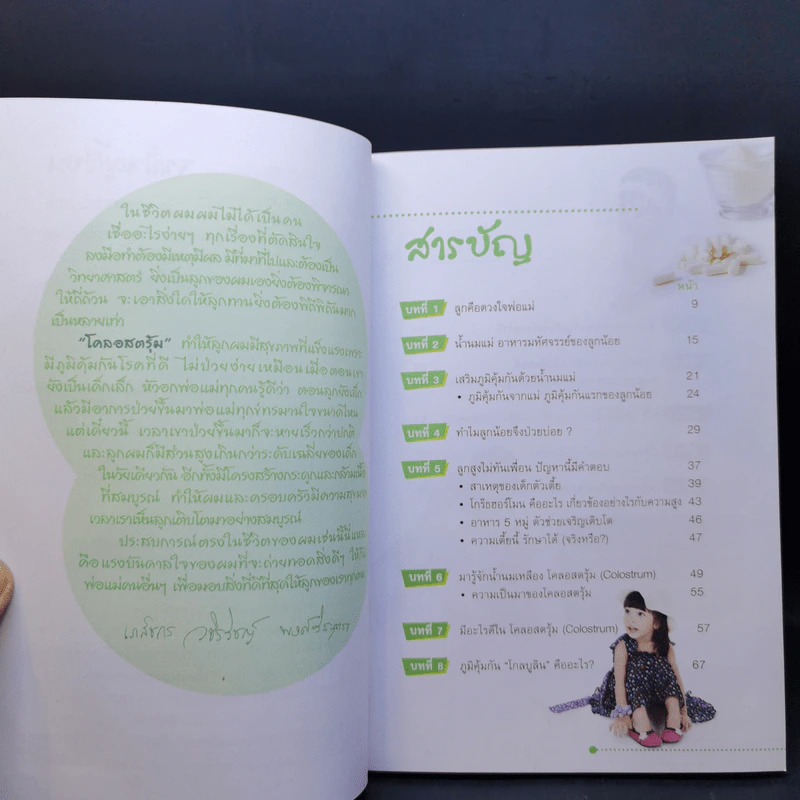 ในชีวิตผมผมไม่ได้เป็นคน
เชื่ออะไรง่ายๆ ทุกเรื่องที่ตัดสินใจ
ลงมือทำต้องมีเหตุมีผล มีที่มาที่ไปและต้องเป็น
วิทยาศาสตร์ ยิ่งเป็นลูกของผมเองยิ่งต้องพิจารณา
ให้ถี่ถ้วน จะเอาสิ่งใดให้ลูกทานยิ่งต้องพิถีพิถันมาก
เป็นหลายเท่า
"โคลอสตรุ้ม" ทำให้ลูกผมมีสุขภาพที่แข็งแรงเพราะ
มีภูมิคุ้มกันโรคที่ดี ไม่ป่วยง่ายเหมือนเมื่อตอนเขา
ยังเป็นเด็กเล็ก หัวอกพ่อแม่ทุกคนรู้ดีว่า ตอนลูกยังเล็ก
แล้วมีอาการป่วยขึ้นมาพ่อแม่ทุกข์ทรมานใจขนาดไหน
แต่เดี๋ยวนี้ เวลาเขาป่วยขึ้นมาก็จะหายเร็วกว่าปกติ
และลูกผมก็มีส่วนสูงเกินกว่าระดับเฉลี่ยของเด็ก
ในวัยเดียวกัน อีกทั้งมีโครงสร้างกระดูกและกล้ามเนื้อ
ที่สมบูรณ์ ทำให้ผมและครอบครัวมีความสุขมาก
เวลาเราเป็นลูกเติบโตมาอย่างสมบูรณ์
ประสบการณ์ตรงในชีวิตของผมเช่นนี้นี่แหละ
คือแรงบันดาลใจของผมที่จะถ่ายทอดสิ่งดีๆ ให้กับ
พ่อแม่คนอื่นๆ เพื่อมอบสิ่งที่ดีที่สุดให้ลูกของเราทุกคน
เภสัชกร
สารบัญ
หน้า
บทที่ 1 ลูกคือดวงใจพ่อแม่ 9
บทที่ 2 น้ำนมแม่ อาหารมหัศจรรย์ของลูกน้อย 15
บทที่ 3 เสริมภูมิคุ้มกันด้วยน้ำนมแม่ 21
• ภูมิคุ้มกันจากแม่ ภูมิคุ้มกันแรกของลูกน้อย 24
บทที่ 4 ทำไมลูกน้อยจึงป่วยบ่อย ? 29
บทที่ 5 ลูกสูงไม่ทันเพื่อน ปัญหานี้มีคำตอบ 37
• สาเหตุของเด็กตัวเตี้ย 39
• โกร๊ธฮอร์โมน คืออะไร เกี่ยวข้องอย่างไรกับความสูง 43
• อาหาร 5 หมู่ ตัวช่วยเจริญเติบโต 46
• ความเตี้ยนี้ รักษาได้ (จริงหรือ?) 47
บทที่ 6 มารู้จักน้ำนมเหลือง โคลอสตรุ้ม (Colostrum) 49
• ความเป็นมาของโคลอสตรุ้ม 55
บทที่ 7 มีอะไรดีใน โคลอสตรุ้ม (Colostrum) 57
บทที่ 8 ภูมิคุ้มกัน "โกลบูลิน" คืออะไร? 67